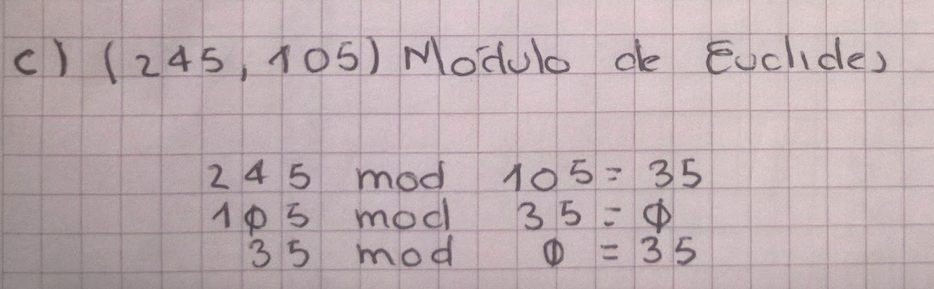 c) (245, 105) Módulo de Euclides
245 mod 105 = 35
105 mod 35 = 0
35 mod 0 = 35